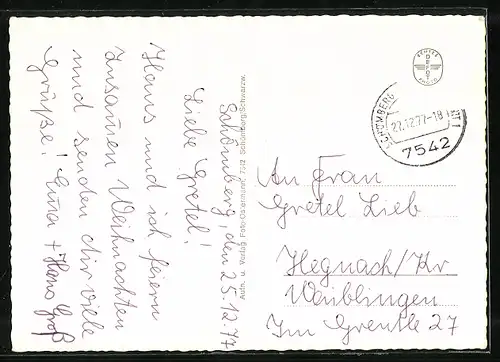 Schömberg, den 25.12.77
Liebe Gretel!
Hans und ich feiern
zusamen Weihnachten
und senden dir viele
Grüße! Erna + Hans Groß
Aufn. u. Verlag Foto 7542 Schömberg/Schwarzw.
ECHTES
FOTO
SCHÖMBERG
27.12.77-18
7542
An Frau
Gretel Lieb
Hegnach/Kr
Waiblingen
Im Grentle 27